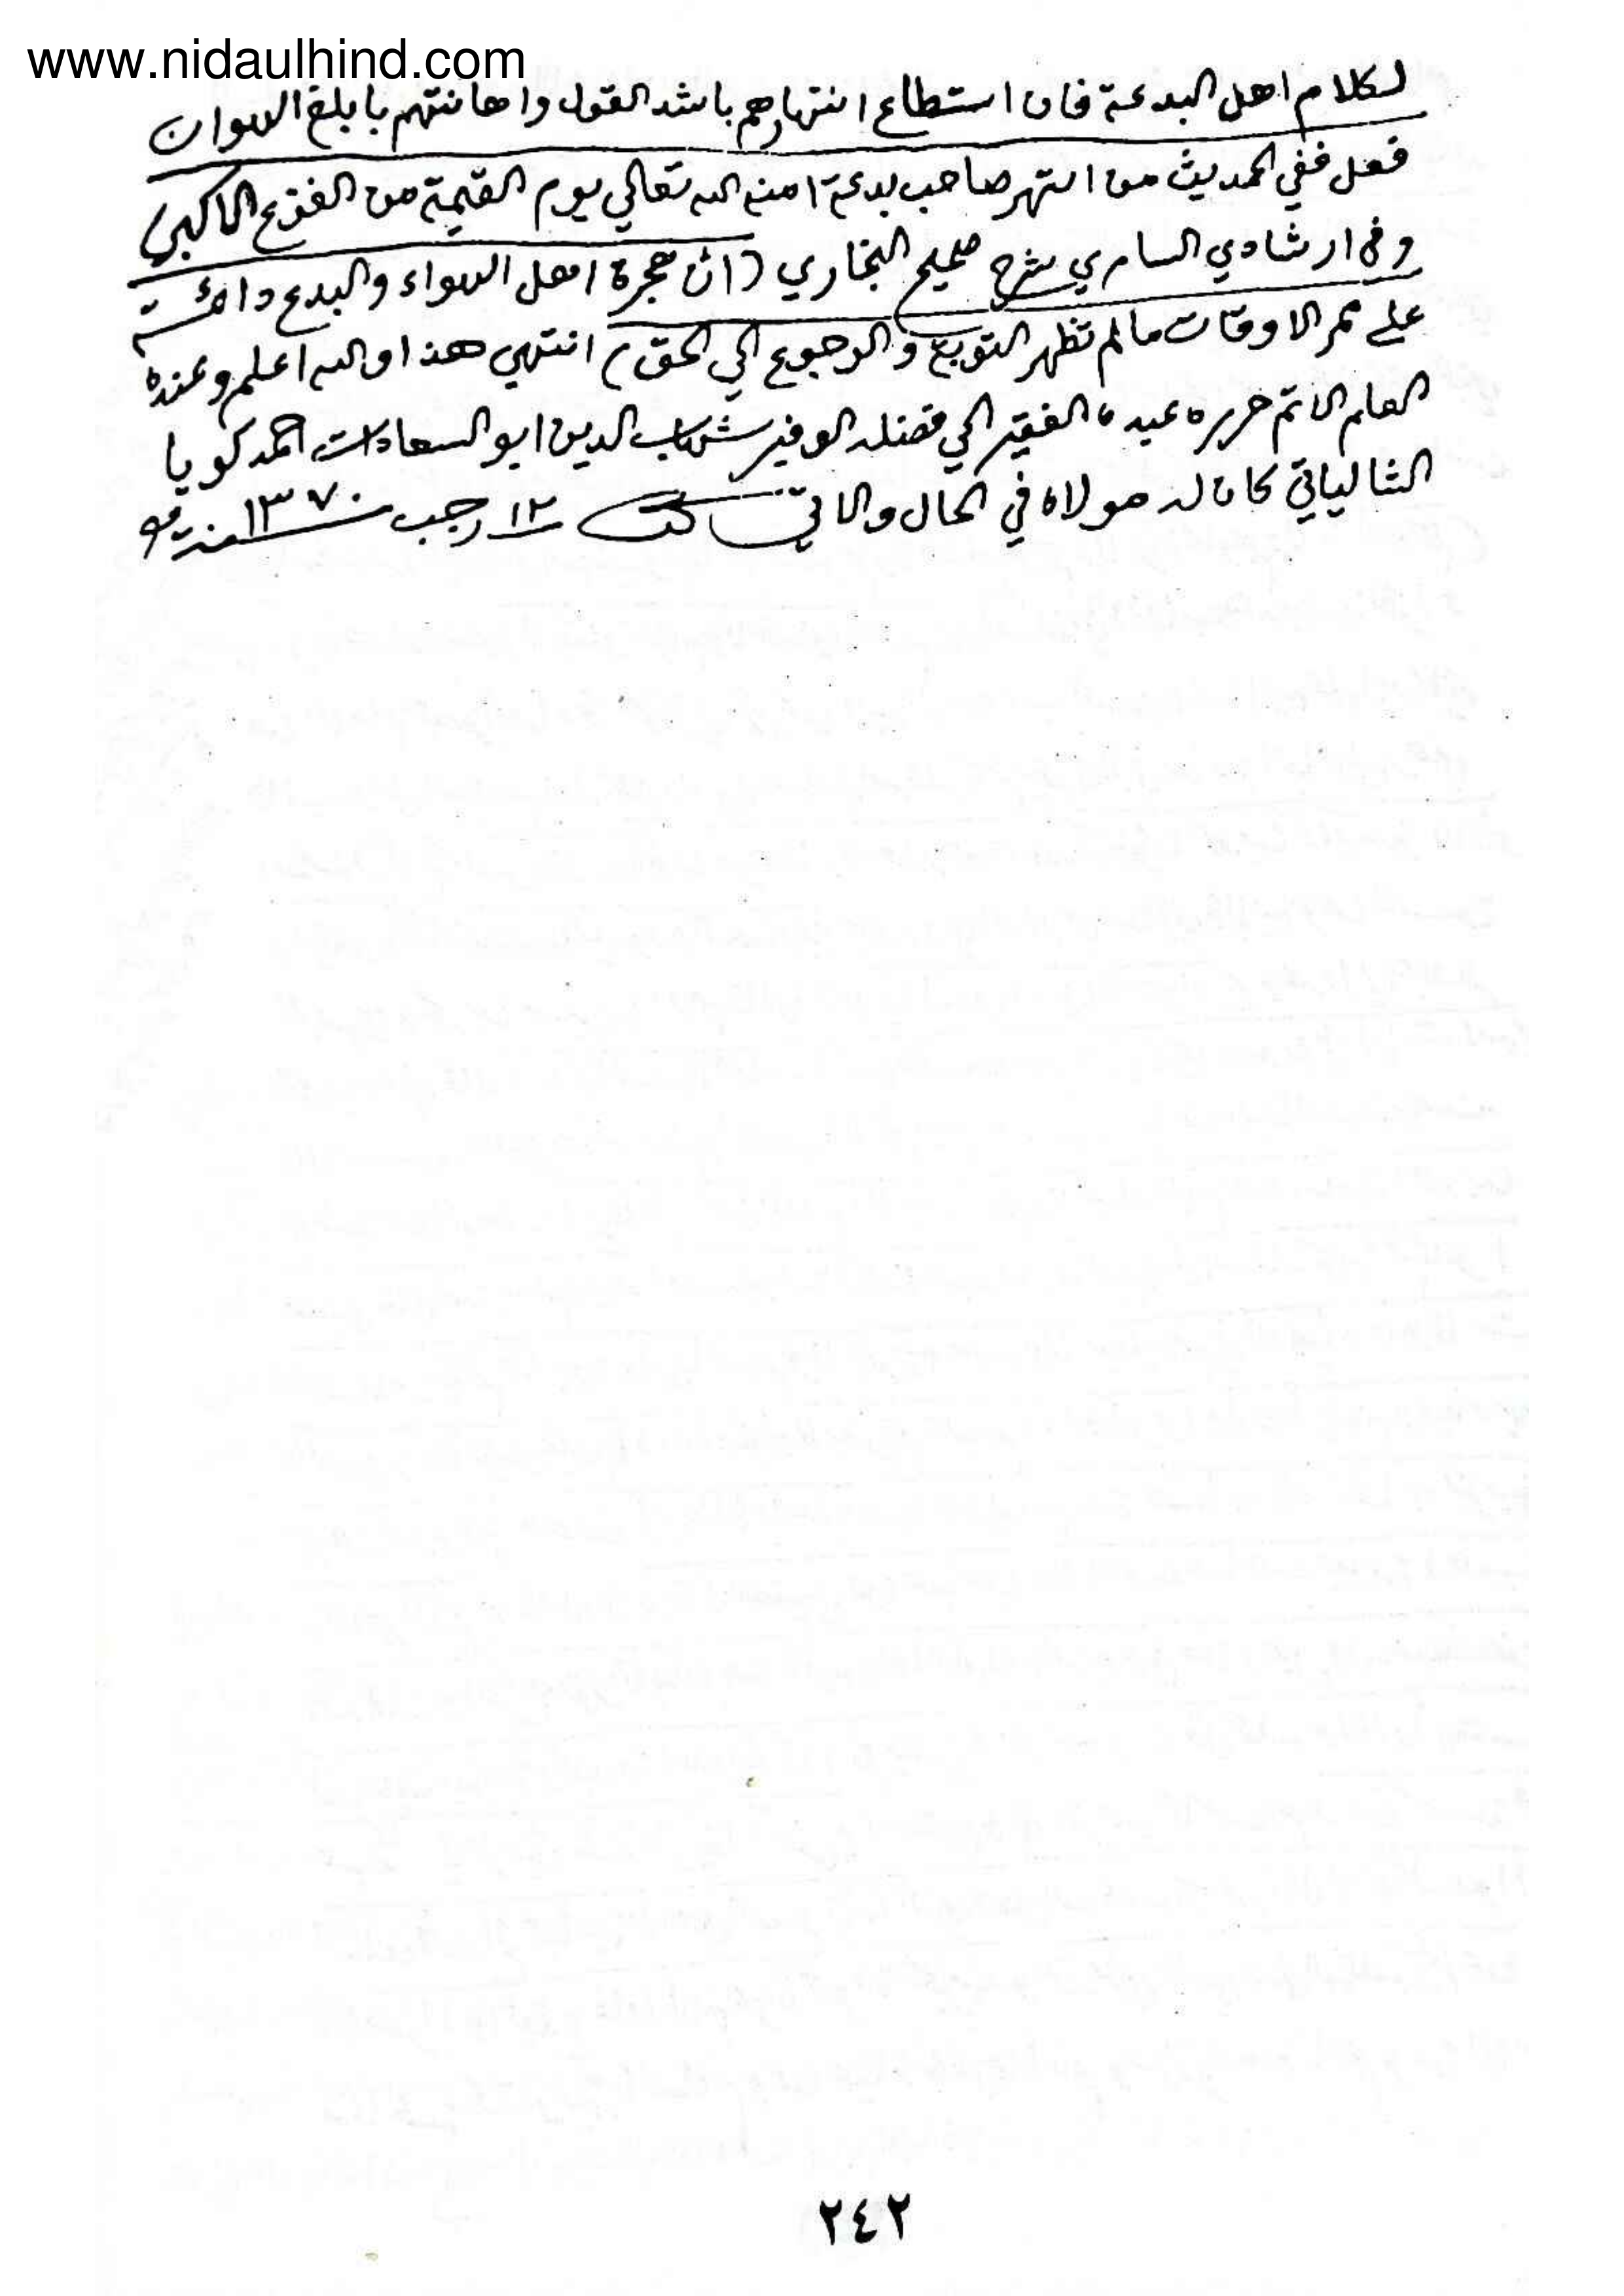 www.nidaulhind.com
لكلام اهل البدعة فان استطاع انتهارهم باشد القول واهانتهم بابلغ الهوان
فعل ففي الحديث من انتهر صاحب بدعة امنه الله تعالي يوم القيمة من الفزع الاكبر)
وفي ارشادي الساري شرح صحيح البخاري (ان هجرة اهل الاهواء والبدع دائمة
علي ممر الاوقات ما لم تظهر التوبة والرجوع الي الحق) انتهي هذا والله اعلم وعنده
العلم الاتم حرره عبده الفقير الي فضله الوفير شهاب الدين ابو السعادات احمد كويا
الشالياتي كان له مولاه في الحال والاتي ١٢ رجب سنة ١٣٧٠
٢٤٢